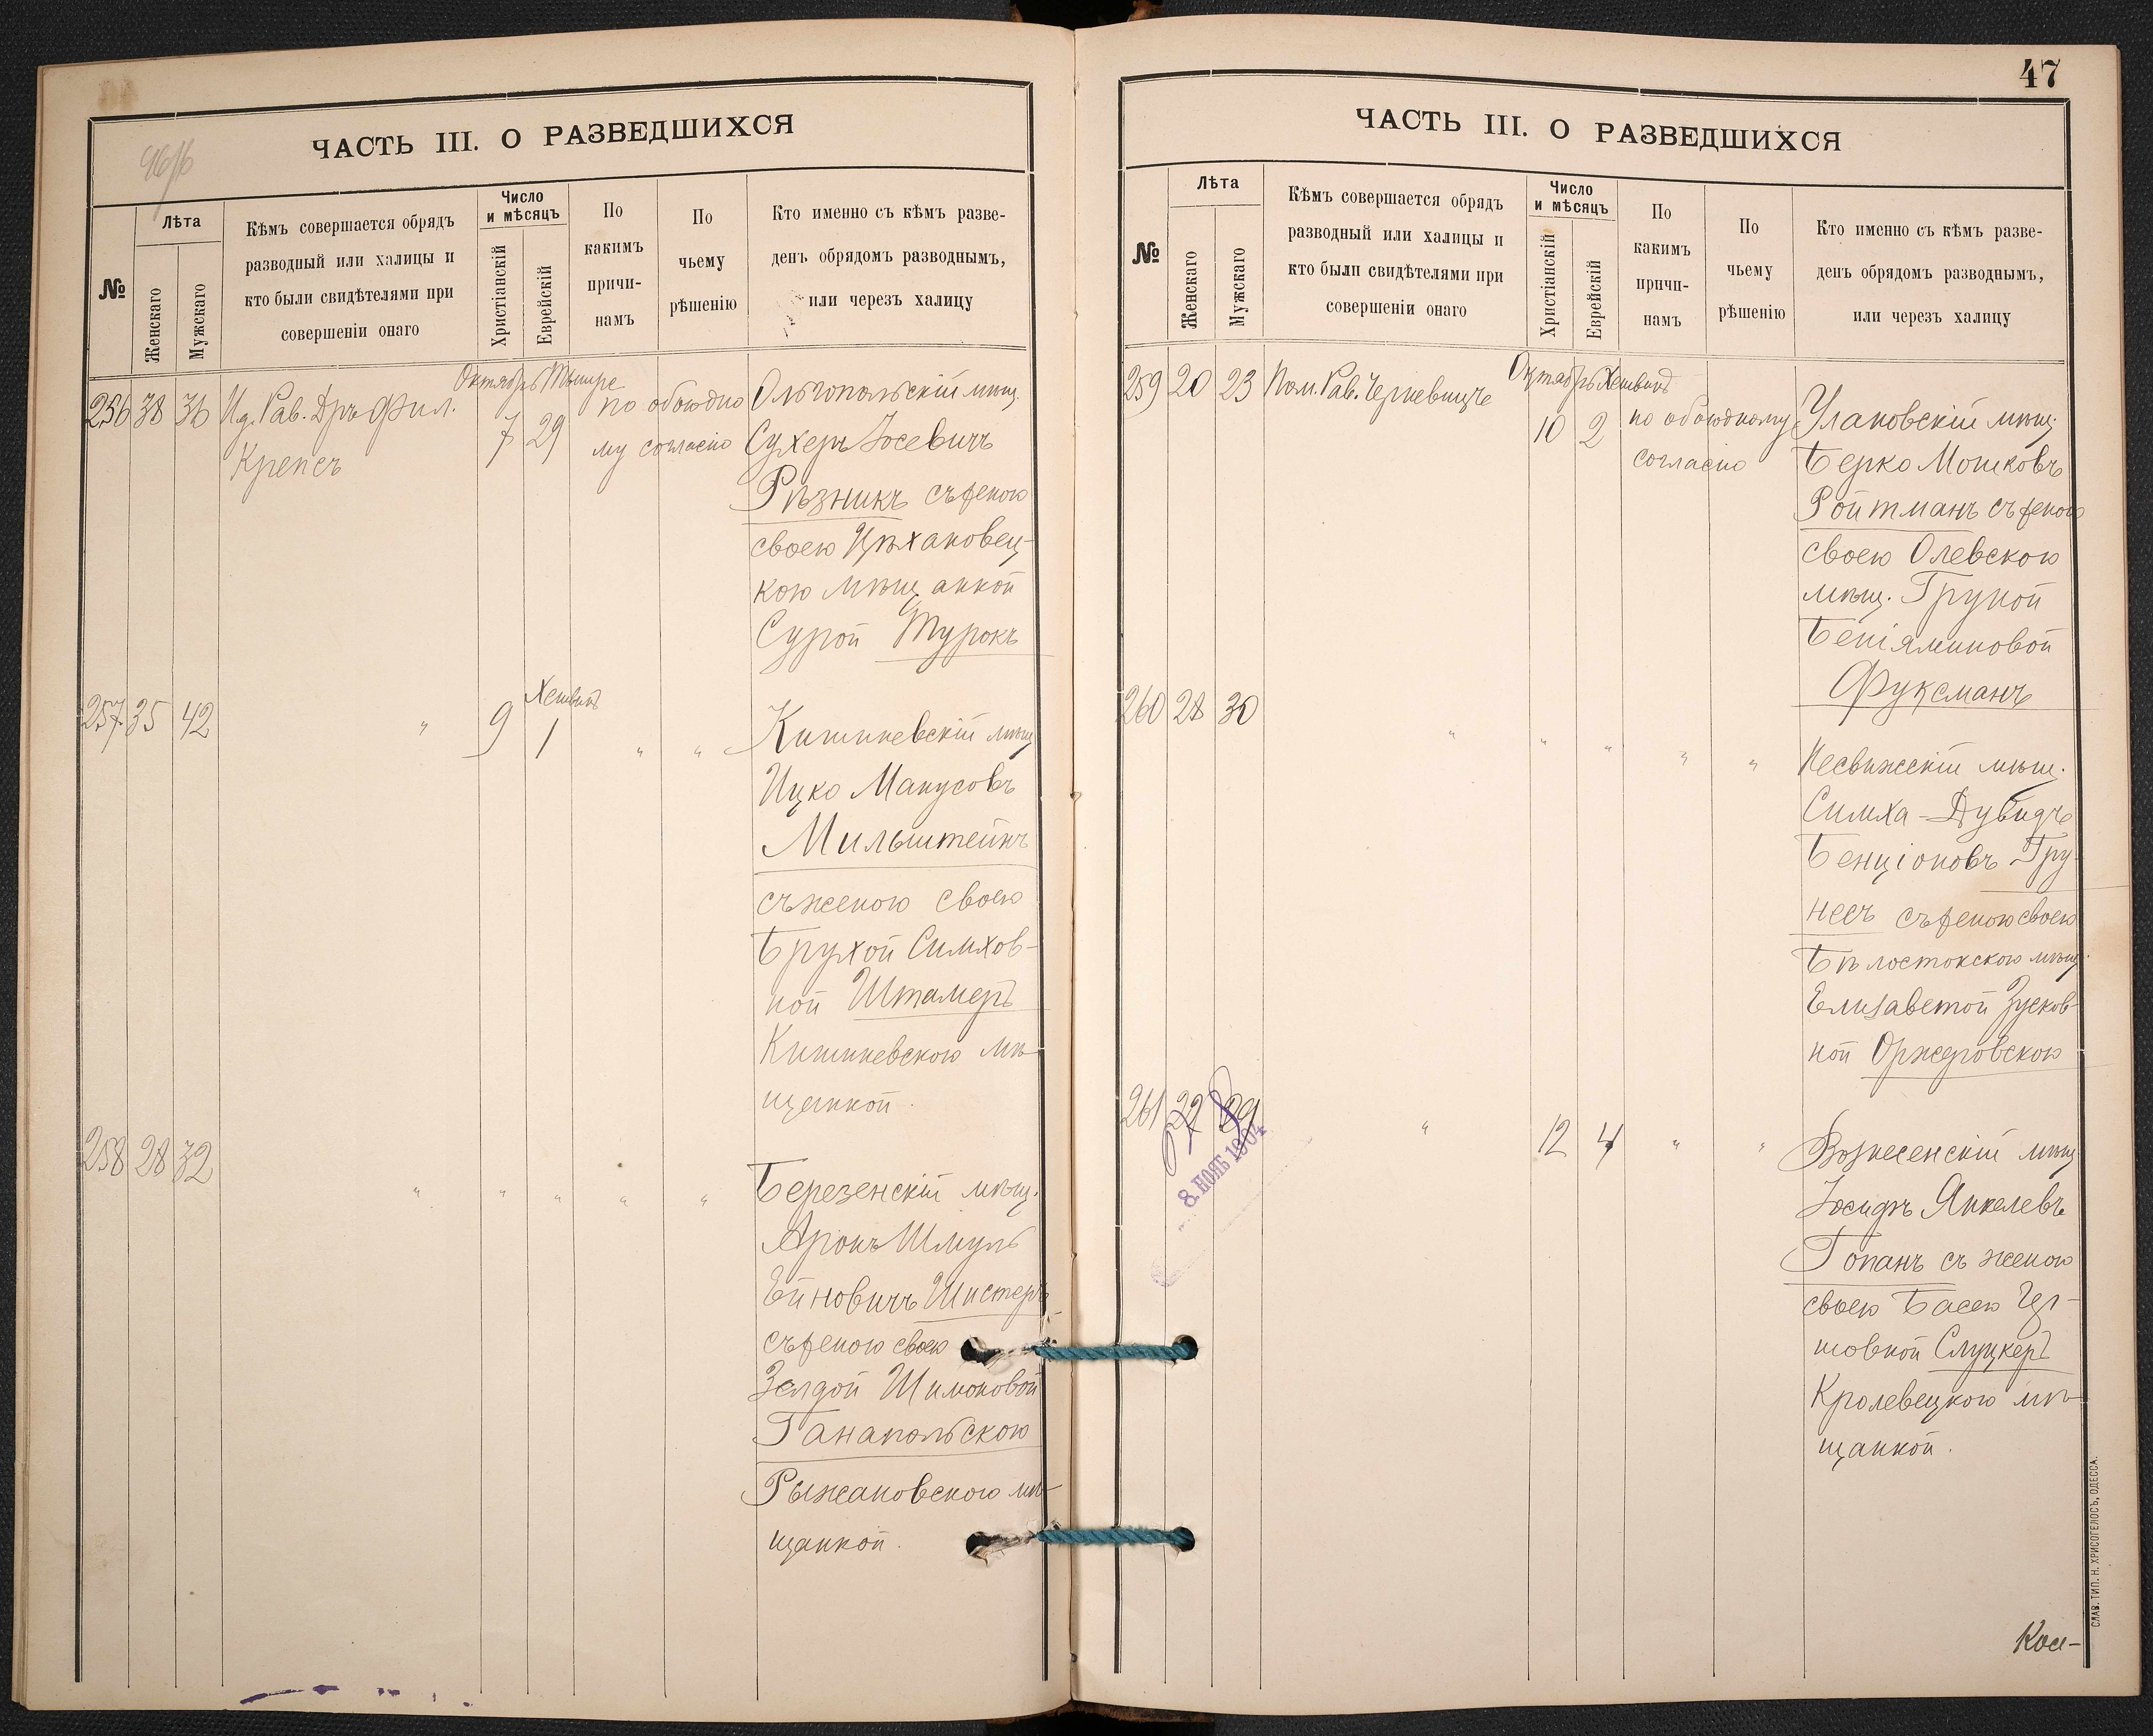 ЧАСТЬ III. О РАЗВЕДШИХСЯ
№
Лѣта
Женскаго
Мужскаго
Кѣмъ совершается обрядъ
разводный или халицы и
кто были свидѣтелями при
совершеніи онаго
Число
и мѣсяцъ
Христіанскій
Еврейскій
По
какимъ
причи-
намъ
По
чьему
рѣшенію
Кто именно съ кѣмъ разве-
денъ обрядомъ разводнымъ,
или черезъ халицу
Октябрь Тишре
256 38 36 Ид. Рав. Дръ Фил. 7 29 по обоюдно Ольгопольскій мѣщ.
Крепсъ му согласію Сухеръ Іосевичъ
Рѣзникъ съ женою
своею Цѣхановец-
кою мѣщанкой
Сурой Турокъ
Хешванъ
257 35 42 " 9 1 " " Кишиневскій мѣщ
Ицко Манусовъ
Мильштейнъ
съ женою своею
Брухой Симхов-
ной Штамеръ
Кишиневскою мѣ-
щанкой.
258 28 32 " " " " " Березенскій мѣщ.
Аронъ Шмуль
Ейновичъ Шистеръ
съ женою своею
Зелдой Шимоновой
Ганапольскою
Рыжановскою мѣ-
щанкой.
47
ЧАСТЬ III. О РАЗВЕДШИХСЯ
№
Лѣта
Женскаго
Мужскаго
Кѣмъ совершается обрядъ
разводный или халицы и
кто были свидѣтелями при
совершеніи онаго
Число
и мѣсяцъ
Христіанскій
Еврейскій
По
какимъ
причи-
намъ
По
чьему
рѣшенію
Кто именно съ кѣмъ разве-
денъ обрядомъ разводнымъ,
или черезъ халицу
Октябрь Хешванъ
259 20 23 Пом. Рав. Черкевичъ 10 2 по обоюдному Улановскій мѣщ.
согласію Берко Мошковъ
Ройтманъ съ женою
своею Олевскою
мѣщ. Груной
Беніяминовой
Фуксманъ
260 28 30 " " " " " Несвижскій мѣщ.
Симха-Дувидъ
Бенціоновъ Гру-
несъ съ женою своею
Бѣлостокскою мѣщ.
Елизаветой Зусков-
ной Оржеровскою
261 22 29 " 12 4 " " Вознесенскій мѣщ
Іосифъ Янкелевъ
Гопанъ съ женою
своею Басею Гер-
шовной Слуцкеръ
Кролевецкою мѣ-
щанкой.
8. НОЯБ 1904
СЛАВ. ТИП. Н. ХРИСОГЕЛОСЪ, ОДЕССА.